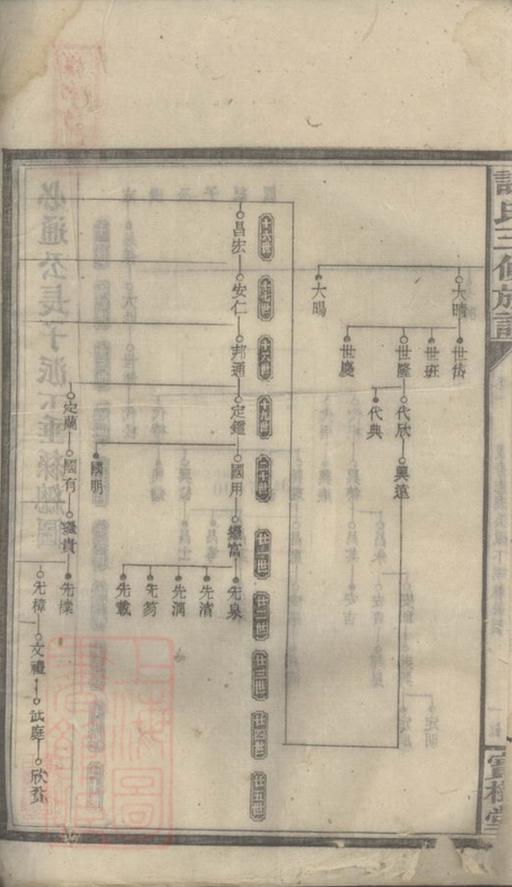 氏三修族譜
大晴
大暘
世岱
世班
世隆
世慶
代欣
代典
興遠
十六世
十七世
十八世
十九世
二十世
廿一世
廿二世
廿三世
廿四世
廿五世
昌宏
安仁
邦通
定鑑
國用
國明
繼富
先泉
先濱
先澗
先芴
先載
定蘭
國有
繼貴
先樸
先樟
文禮
試庭
欣발
寶樹堂